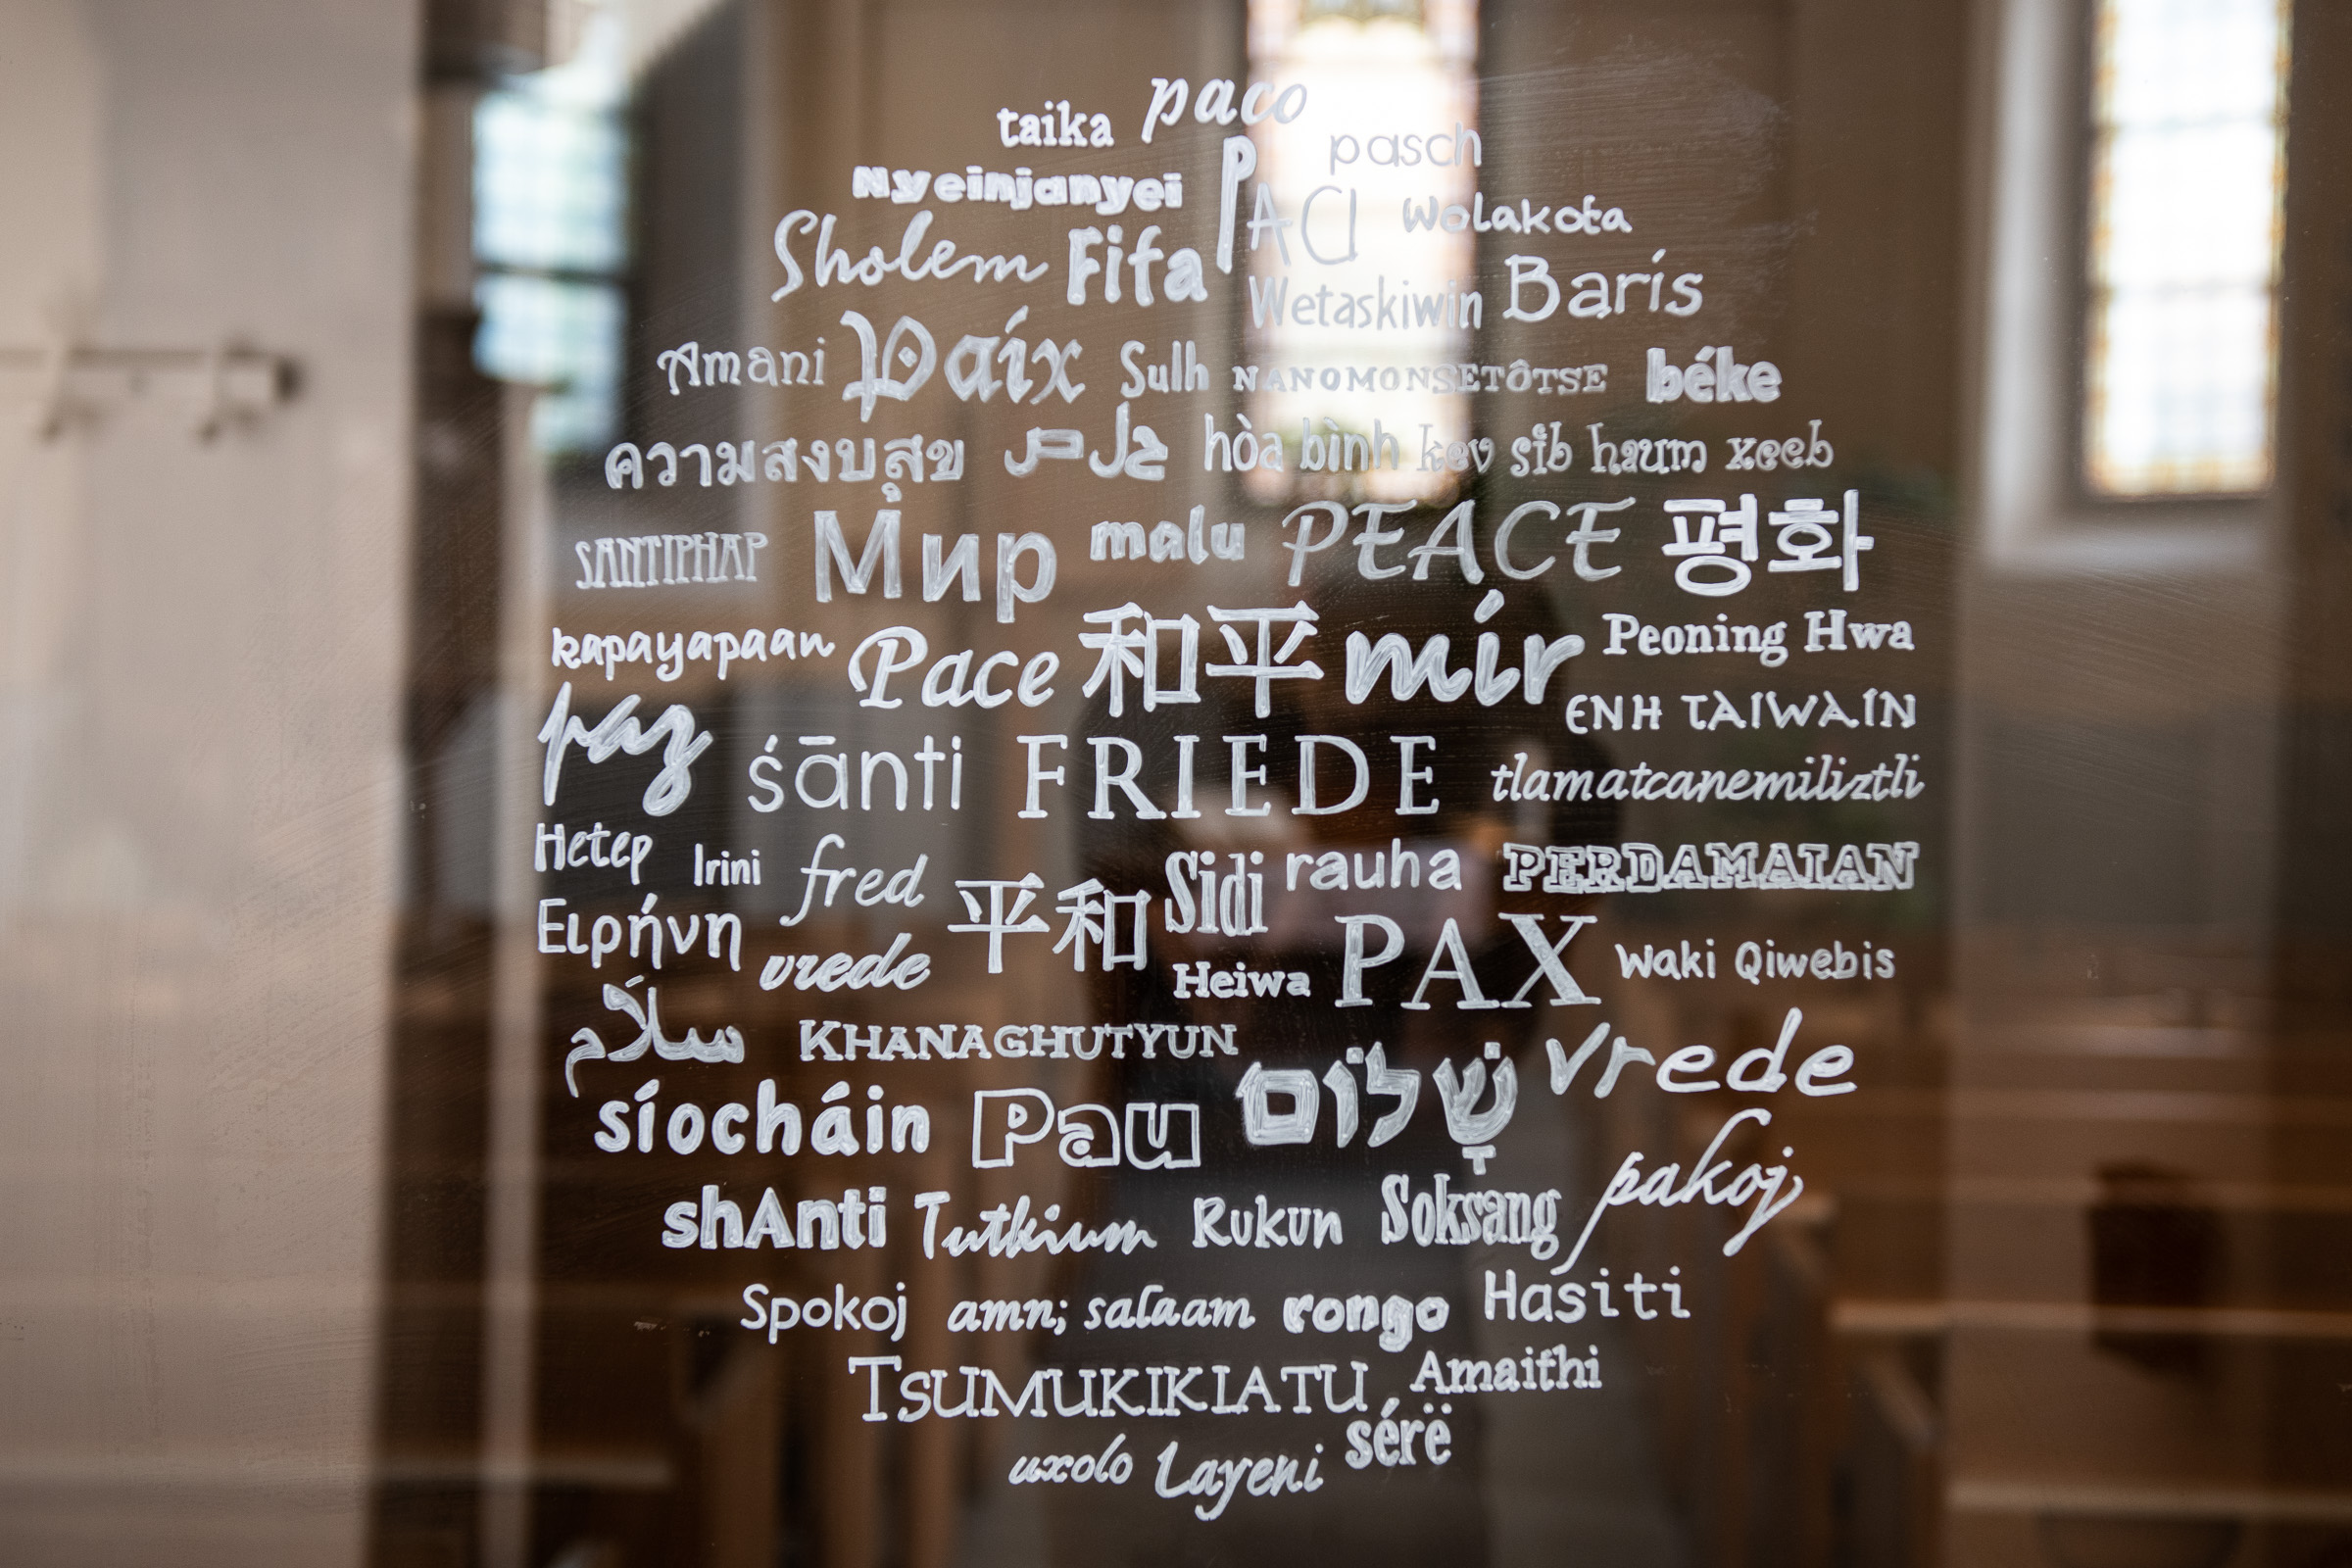 taika paco
pasch
Nyeinjanyei PACI Wolakota
Sholem Fifa Wetaskiwin Barís
Amani Paíx Sulh NANOMONSETÔTSE béke
ความสงบสุข hòa bình kev sib haum xeeb
SANTIPHAP Мир malu PEACE 평화
kapayapaan Pace 和平 mír Peoning Hwa
paz ENH TAIWAIN
śānti FRIEDE tlamatcanemiliztli
Hetep Irini fred Sidi rauha PERDAMAIAN
Ειρήνη vrede 平和 Heiwa PAX Waki Qiwebis
سلام KHANAGHUTYUN vrede
síocháin Pau שָׁלוֹם
shAnti Tutkium Rukun Soksang pakoj
Spokoj amn; salaam rongo Hasiti
TSUMUKIKIATU Amaithi
uxolo Layeni sérë